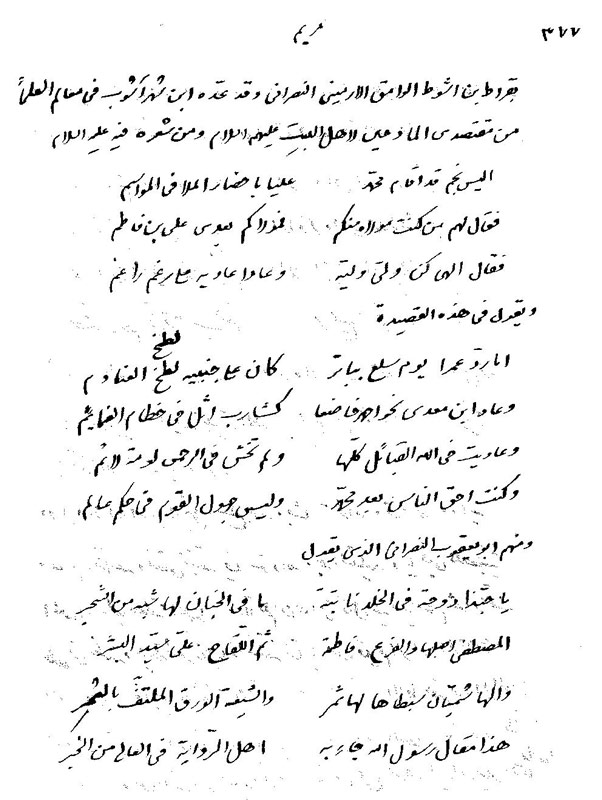 مريم ٣٧٧
بقراط بن اشوط الوامق الارميني النصراني وقد عدّه ابن شهرآشوب في معالم العلماء
من مقتصدي المادحين لاهل البيت عليهم السلام ومن شعره فيه عليه السلام
اليس بخم قد اقام محمّد عليا باحضار الملا في المواسم
فقال لهم من كنت مولاه منكم فمولاكم بعدي علي بن فاطم
فقال الهي كن ولي وليّه وعاد اعاديه على رغم راغم
ويقول في هذه القصيدة
اما ردّ عمرا يوم سلع بباتر كان على جنبيه لطخ العنادم
لطخ
وعاد ابن معدي نحو احمد خاضعا كشارب اثل في خطام الغمايم
وعاديت في الله القبائل كلّها ولم تخش في الرحمن لومة لائم
وكنت احق الناس بعد محمّد وليس جهول القوم في حكم عالم
ومنهم ابو يعقوب النصراني الذي يقول
يا حبّذا دوحة في الخلد نابتة ما في الجنان لها شبه من الشجر
المصطفى اصلها والفرع فاطمة ثم اللّقاح علىّ سيّد البشر
والهاشميّان سبطاها لها ثمر والشيعة الورق الملتفّ بالثمر
هذا مقال رسول الله جاء به اهل الرّواية في العالي من الخبر